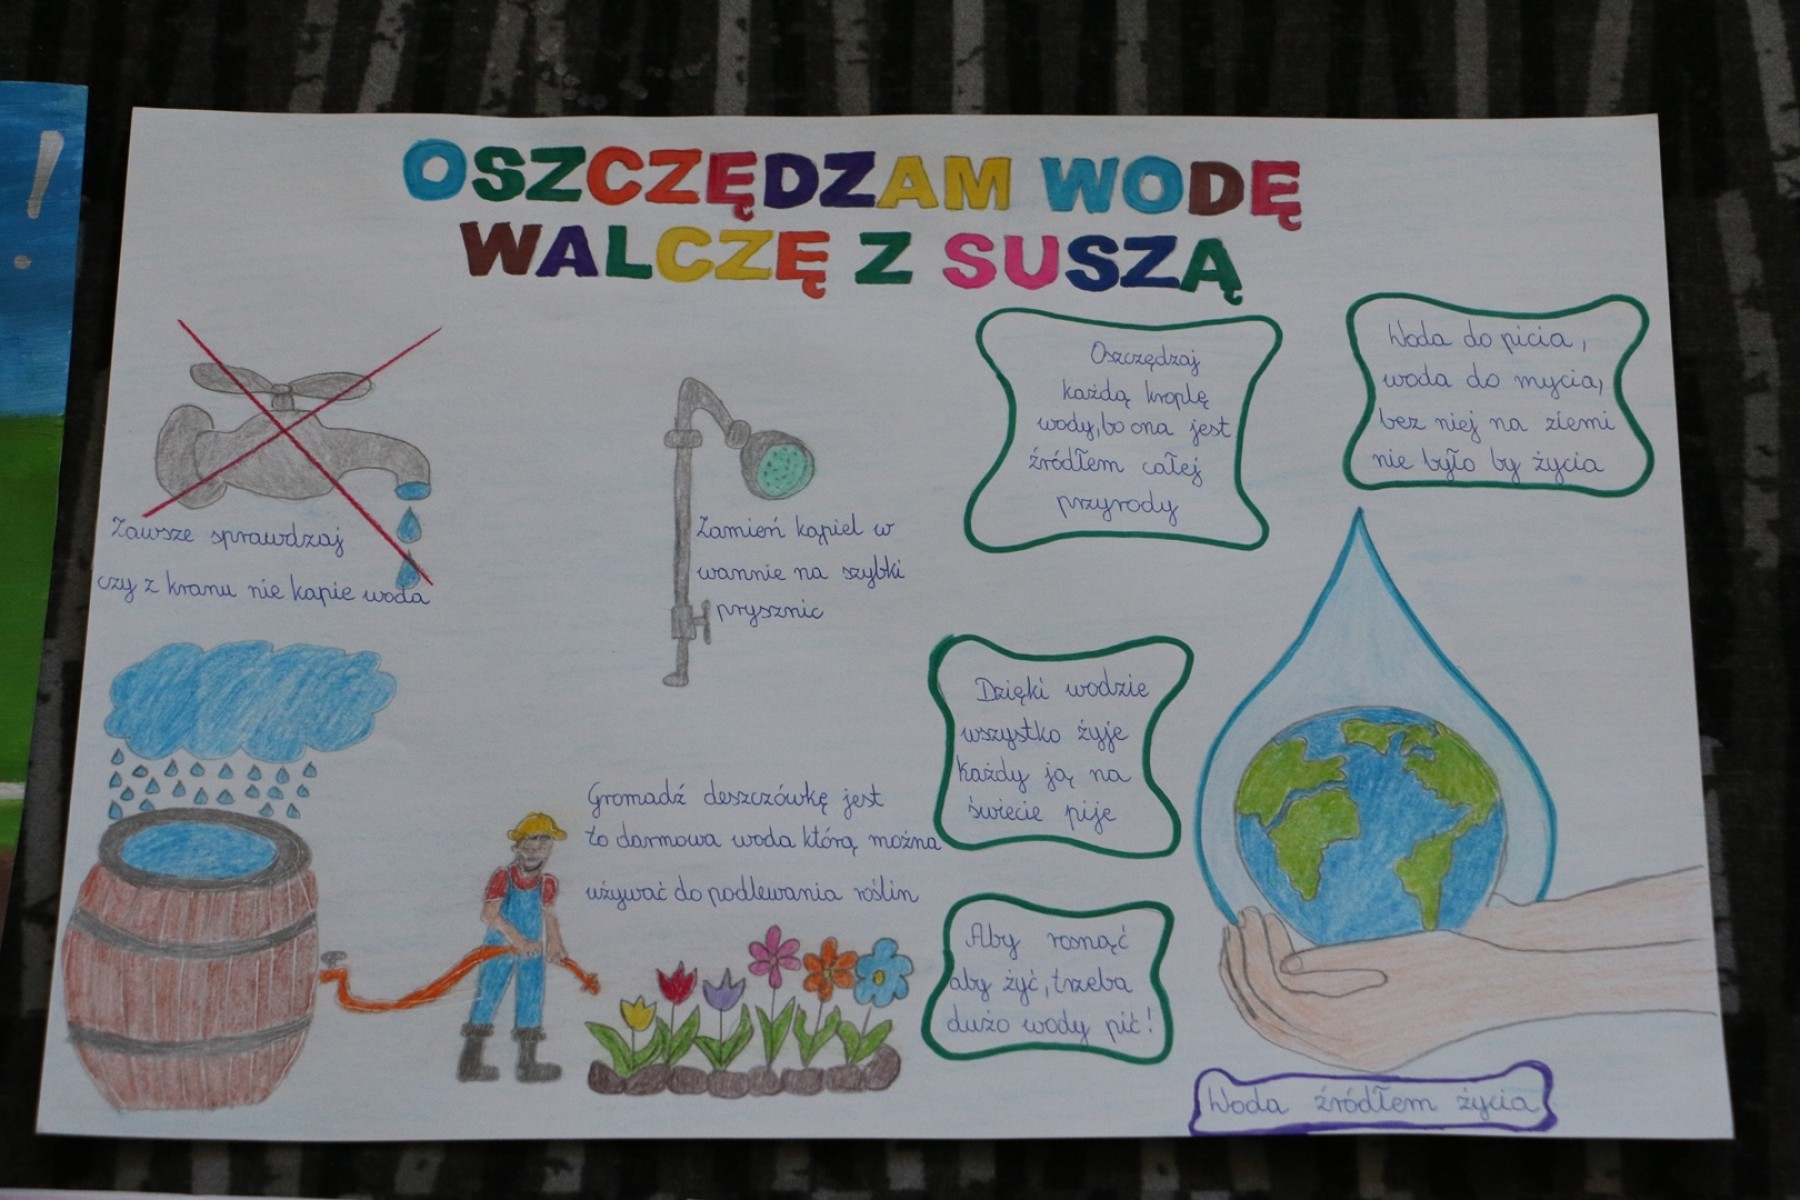 !
OSZCZĘDZAM WODĘ
WALCZĘ Z SUSZĄ
Oszczędzaj
każdą kroplę
wody, bo ona jest
źródłem całej
przyrody
Woda do picia,
woda do mycia,
bez niej na ziemi
nie było by życia
Zawsze sprawdzaj
czy z kranu nie kapie woda
Zamień kąpiel w
wannie na szybki
prysznic
Dzięki wodzie
wszystko żyje
Każdy ją na
świecie pije
Gromadź deszczówkę jest
to darmowa woda którą można
używać do podlewania roślin
Aby rosnąć
aby żyć, trzeba
dużo wody pić!
Woda źródłem życia